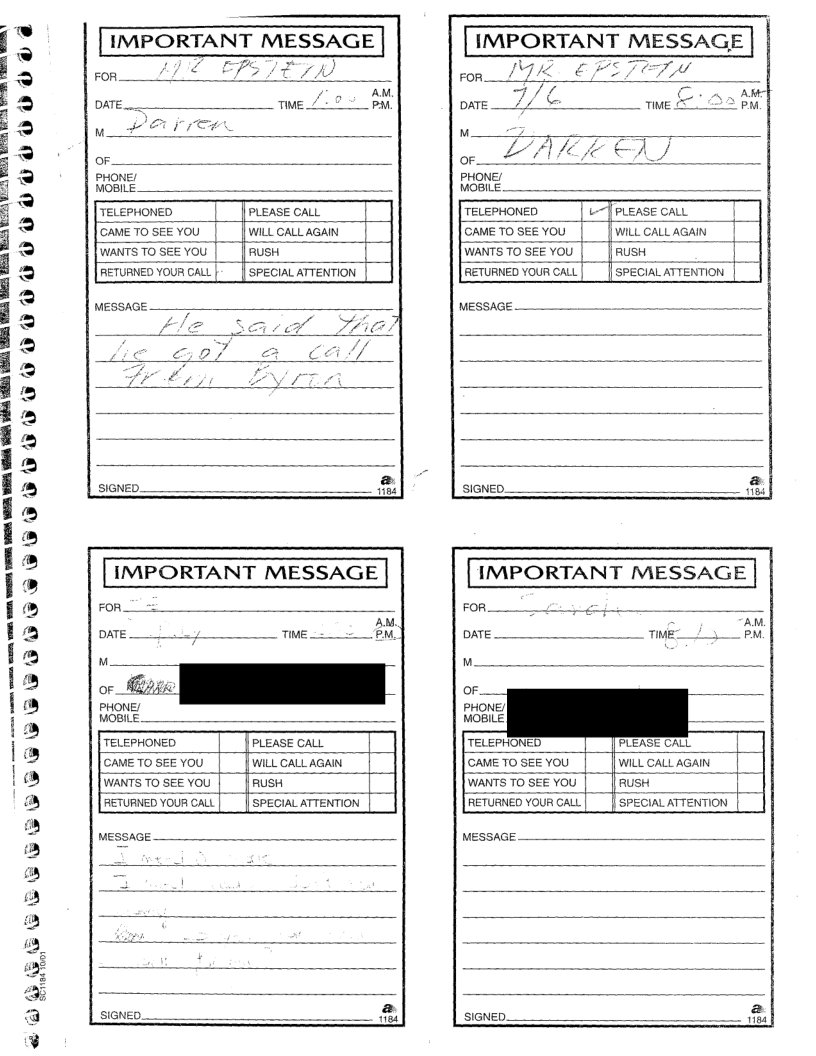 IMPORTANT MESSAGE
FOR MR EPSTEIN
DATE TIME 1:00 A.M. P.M.
M Darren
OF
PHONE/
MOBILE
TELEPHONED PLEASE CALL
CAME TO SEE YOU WILL CALL AGAIN
WANTS TO SEE YOU RUSH
RETURNED YOUR CALL SPECIAL ATTENTION
MESSAGE
He said that
he got a call
From Byron
SIGNED
a
1184
IMPORTANT MESSAGE
FOR MR. EPSTEIN
DATE 7/6 TIME 8:00 A.M. P.M.
M
OF DARREN
PHONE/
MOBILE
TELEPHONED PLEASE CALL
CAME TO SEE YOU WILL CALL AGAIN
WANTS TO SEE YOU RUSH
RETURNED YOUR CALL SPECIAL ATTENTION
MESSAGE
SIGNED
a
1184
IMPORTANT MESSAGE
FOR
DATE TIME A.M. P.M.
M
OF
PHONE/
MOBILE
TELEPHONED PLEASE CALL
CAME TO SEE YOU WILL CALL AGAIN
WANTS TO SEE YOU RUSH
RETURNED YOUR CALL SPECIAL ATTENTION
MESSAGE
I
I
SIGNED
a
1184
IMPORTANT MESSAGE
FOR Sarah
DATE TIME A.M. P.M.
M
OF
PHONE/
MOBILE
TELEPHONED PLEASE CALL
CAME TO SEE YOU WILL CALL AGAIN
WANTS TO SEE YOU RUSH
RETURNED YOUR CALL SPECIAL ATTENTION
MESSAGE
SIGNED
a
1184
SC1184 10/01